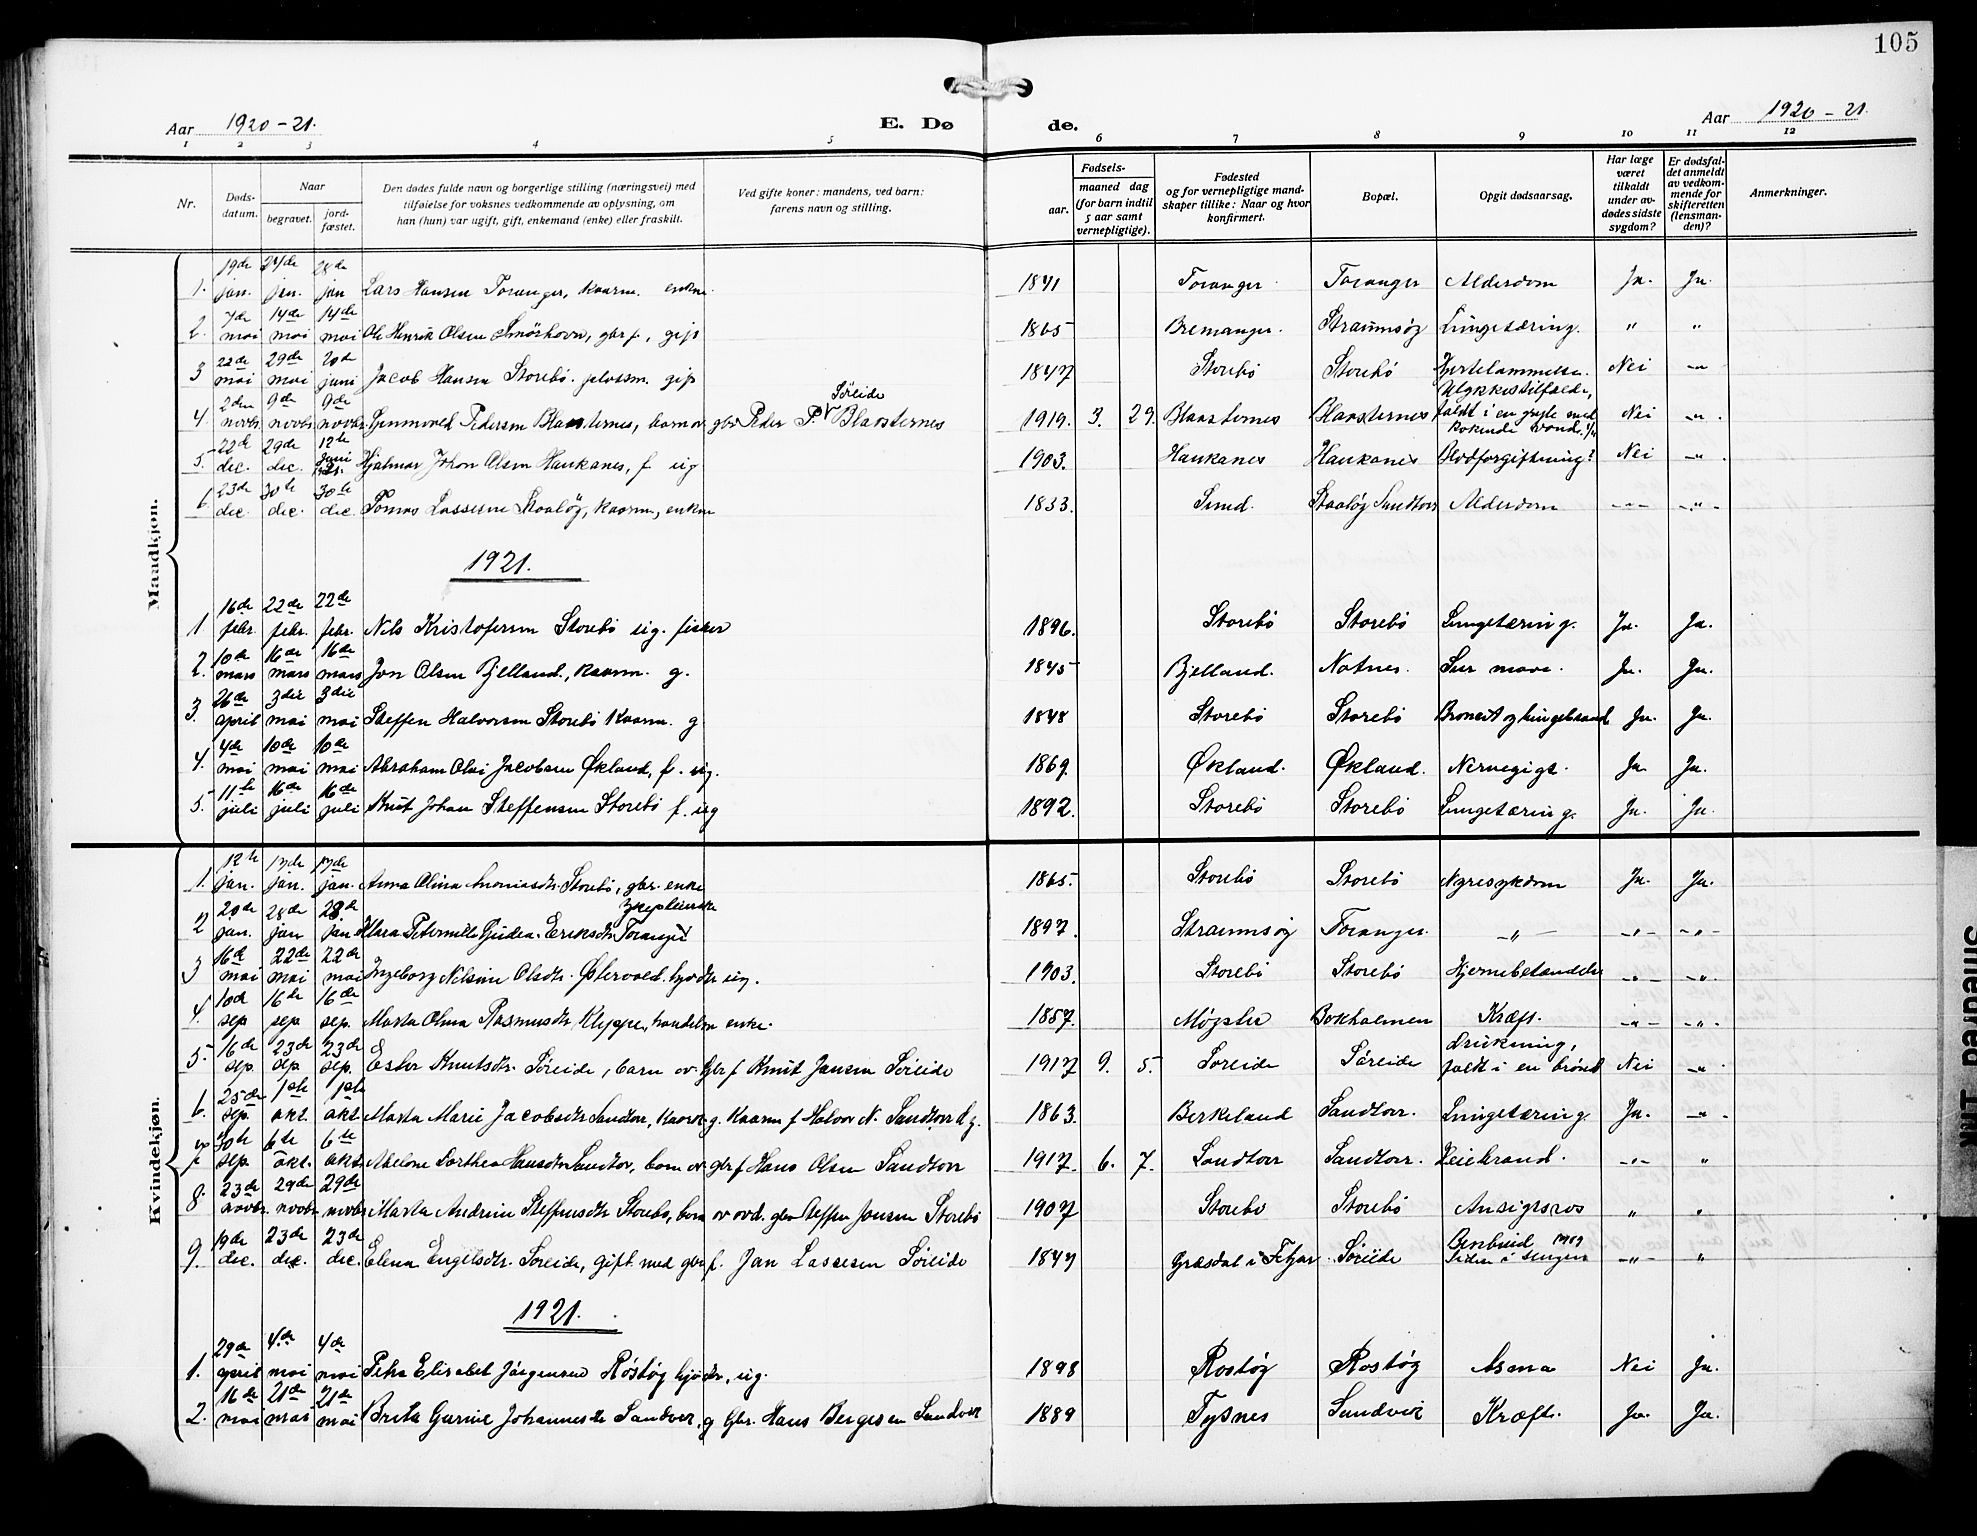 105
Aar 1920-21.
E. Døde.
Aar 1920-21
1 2 3 4 5 6 7 8 9 10 11 12
Nr. Døds-datum. Naar begravet. jord-fæstet. Den dødes fulde navn og borgerlige stilling (næringsvei) med tilføielse for voksnes vedkommende av oplysning, om han (hun) var ugift, gift, enkemand (enke) eller fraskilt. Ved gifte koner: mandens, ved barn: farens navn og stilling. Fødsels- aar. maaned dag (for barn indtil 5 aar samt vernepligtige). Fødested og for vernepligtige mandskaper tillike: Naar og hvor konfirmert. Bopæl. Opgit dødsaarsag. Har læge været tilkaldt under avdødes sidste sygdom? Er dødsfaldet anmeldt av vedkommende for skifteretten (lensmanden)? Anmerkninger.
Maadkjøn.
1. 19de jan. 24de jan. 28de jan Lars Hansen Toranger, kaarm. enkm. 1841 Toranger Toranger Alderdom Ja. Ja.
2. 7de mai 14de mai 14de mai Ole Henrik Olsen Smørhovn, gbr f, gift 1865 Bremanger. Straumsøy Lungetæring. " "
3 22de mai 29de mai 20de juni Jacob Hansen Storebø. gift 1847 Storebø Storebø Hjertelammelse. Nei "
4. 2den novbr. 9de novbr. 9de novbr. Pedersen Blaasternes, barn av gbr Peder P. Søreide Blaasternes 1919. 3. 29. Blaasternes Blaasternes Ulykkestilfælde, faldt i en gryte med kokende vand. Nei "
5. 22de dec. 29de dec. 12te juni 1921. Hjalmar Johan Olsen Haukanes, f. ug 1903. Haukanes Haukanes Blodforgiftning? Nei "
6. 23de dec. 30te dec. 30te dec. Tomas Lassesen Skaaløy, kaarm, enkm 1833. Sund. Skaaløy Sandtorv Alderdom " "
1921.
1 16de febr. 22de febr. 22de febr. Nils Kristofersen Storebø ug. fisker 1896. Storebø Storebø Lungetæring. Ja. Ja.
2. 10de mars 16de mars 16de mars Jon Olsen Bjelland, kaarm. g. 1845 Bjelland. Notnes. Sur mave. Ja. Ja.
3. 26de april 3die mai 3die mai Steffen Halvorsen Storebø Kaarm. g 1848 Storebø Storebø Bronkit og lungebrand Ja. Ja.
4. 4de mai 10de mai 10de mai Abraham Olai Jacobsen Økland, f. ug. 1869. Økland. Økland. Nervegigt. Ja. Ja.
5. 11te juli 16de juli 16de juli Knut Johan Steffensen Storebø f. ug 1892. Storebø Storebø Lungetæring. Ja. Ja.
Kvindekjøn.
1. 12te jan. 17de jan. 17de jan. Anna Olina Storebø, gbr. enke 1865. Storebø Storebø Nyresykdom Ja. Ja.
2 20de jan. 28de jan 28.de jan Klara Peternille Gjudea Eriksdtr. Toranger sykepleierske 1897. Straumsøy Toranger. " " "
3 16de mai 22de mai 22de mai Ingeborg Nelsine Olsdtr. Østervold. hjdtr ug. 1903. Storebø Storebø Hjernebetændelse " "
4. 10de sep 16de sep 16de sep. Marta Olina Rasmusdtr Kleppe, handelsm enke. 1857. Møgster Bokholmen Kræft. " "
5. 16de sep. 23de sep. 23de sep. Ester Knutsdtr. Søreide, barn av Gbr f Knut Jansen Søreide 1917 9. 5. Søreide Søreide Drukning, faldt i en brønd Nei "
6. 25de sep. 1ste okt. 1ste okt. Marta Marie Jacobsdtr Sandtorv, Kaark. g. Kaarm f Halvor N. Sandtorv d.y. 1863. Berkeland Sandtorv. Lungetæring. Ja. "
7 30te sep. 6te okt. 6te okt. Abelone Dorthea Hansdtr Sandtorv, barn av gbr f Hans Olsen Sandtorv 1917. 6. 7. Sandtorv Sandtorv. Leiebrand. " "
8. 23de novbr. 29de novbr. 29de novbr. Marta Andrine Steffensdtr Storebø, barn av avd. gbr Steffen Jonsen Storebø 1907 Storebø Storebø Ansigtsros " "
9. 19de dec. 23de dec. 23de dec. Elena Engelsdtr. Søreide, gift med gbr f. Jan Lassesen Søreide 1847 Græsdal i Fitjar Søreide Benbrud 1919 Siden i sengen " "
1921.
1. 29de april 4.de mai 4de mai Petra Elisabet Jørgensen Røstøy hjdtr, ug. 1898 Rostøy Rostøy Asma Nei Ja.
2. 16de mai 21de mai 21de mai Brita Gurine Johannesdtr Sandvik, g Gbr. Hans Bergesen Sandvik 1889 Tysnes Sandvik Kræft. Ja. Ja.